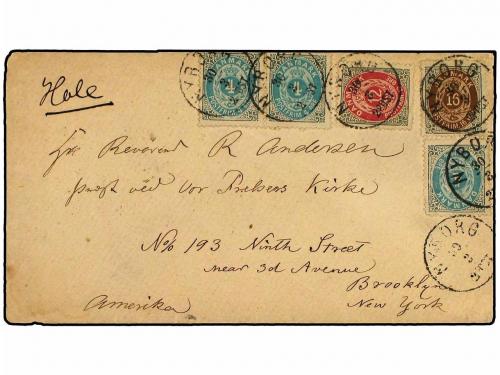 NYBORG NYBORG NYBORG NYBORG
DANMARK
4 4 16
Hole
NYBORG
Reverend R Andersen
NYBORG
præst ved Vor Frelsers Kirke
No 193 Ninth Street
near 3d Avenue
Brooklyn
Amerika New York